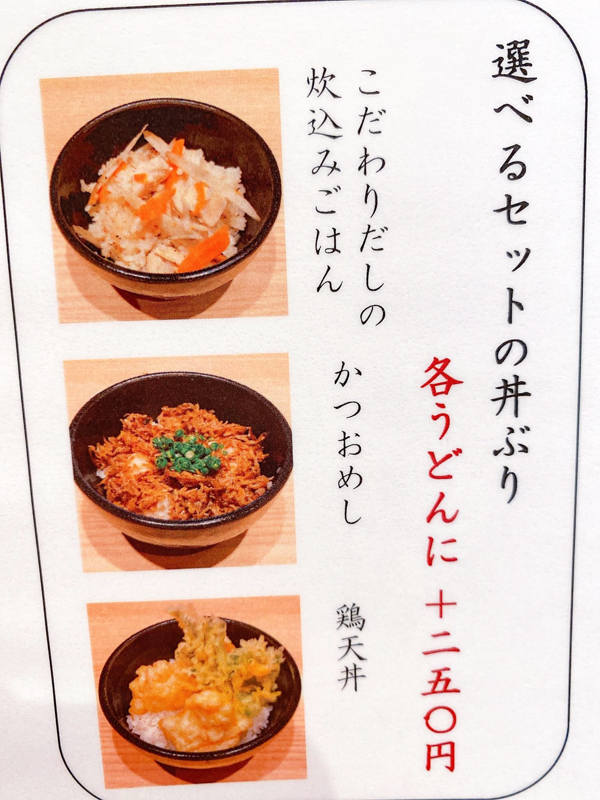 選べるセットの丼ぶり
各うどんに +二五〇円
こだわりだしの
炊込みごはん
かつおめし
鶏天丼